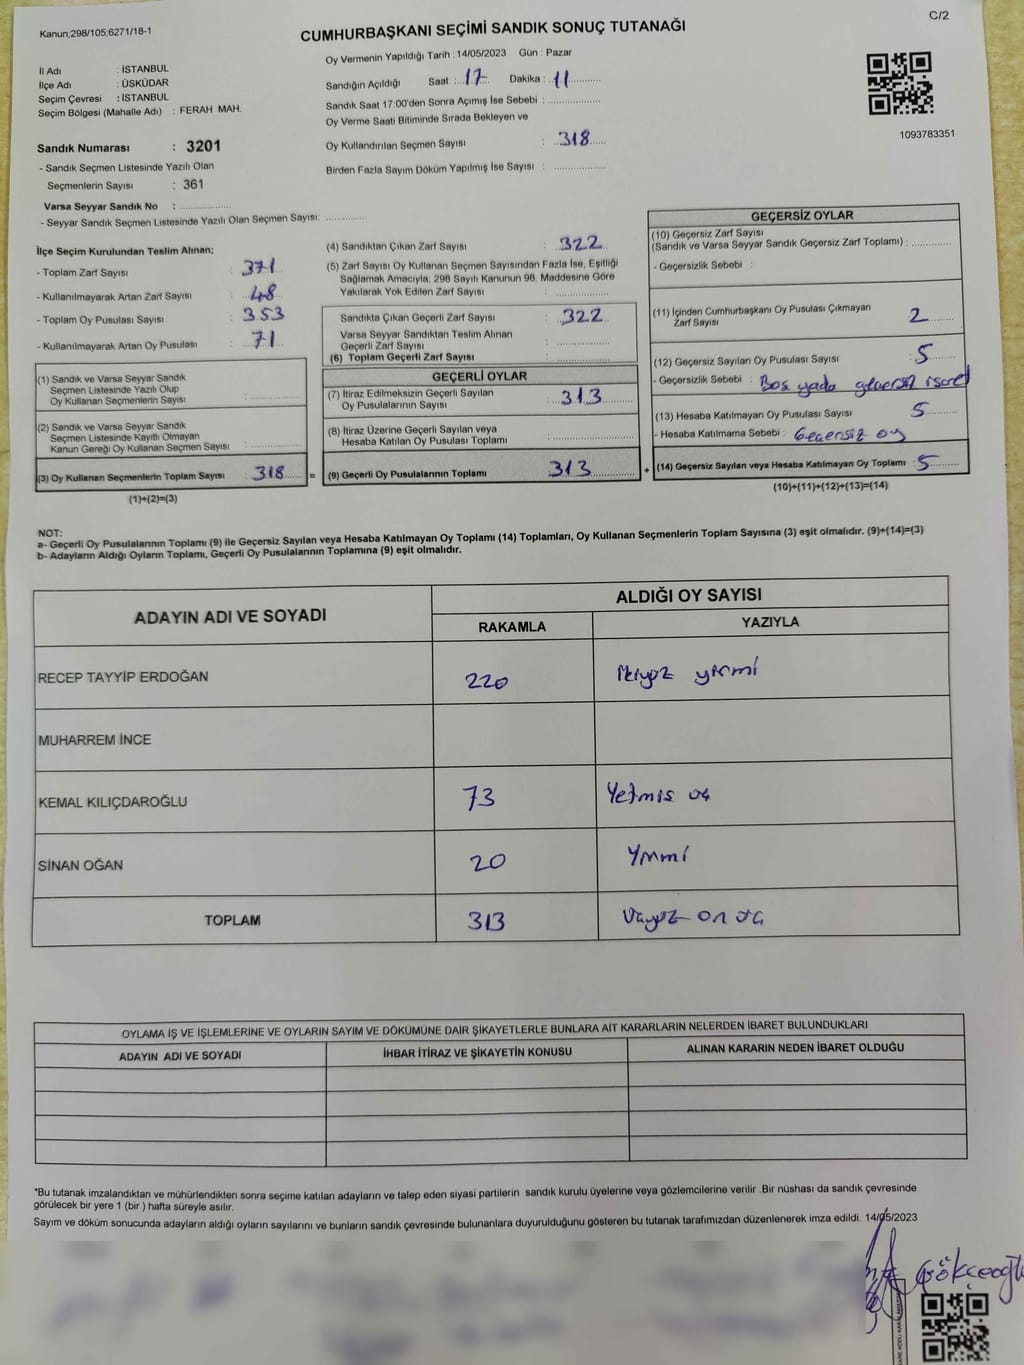 Kanun;298/105;6271/18-1
C/2
CUMHURBAŞKANI SEÇİMİ SANDIK SONUÇ TUTANAĞI
Oy Vermenin Yapıldığı Tarih : 14/05/2023 Gün : Pazar
İl Adı : İSTANBUL
İlçe Adı : ÜSKÜDAR
Seçim Çevresi : İSTANBUL
Seçim Bölgesi (Mahalle Adı) : FERAH MAH.
Sandığın Açıldığı Saat : 17 Dakika : 11
Sandık Saat 17:00'den Sonra Açımış İse Sebebi :
Oy Verme Saati Bitiminde Sırada Bekleyen ve
Oy Kullandırılan Seçmen Sayısı : 318
Birden Fazla Sayım Döküm Yapılmış İse Sayısı :
1093783351
Sandık Numarası : 3201
- Sandık Seçmen Listesinde Yazılı Olan
Seçmenlerin Sayısı : 361
Varsa Seyyar Sandık No :
- Seyyar Sandık Seçmen Listesinde Yazılı Olan Seçmen Sayısı:
İlçe Seçim Kurulundan Teslim Alınan;
- Toplam Zarf Sayısı : 371
- Kullanılmayarak Artan Zarf Sayısı : 48
- Toplam Oy Pusulası Sayısı : 353
- Kullanılmayarak Artan Oy Pusulası : 71
(1) Sandık ve Varsa Seyyar Sandık
Seçmen Listesinde Yazılı Olup
Oy Kullanan Seçmenlerin Sayısı :
(2) Sandık ve Varsa Seyyar Sandık
Seçmen Listesinde Kayıtlı Olmayan
Kanun Gereği Oy Kullanan Seçmen Sayısı :
(3) Oy Kullanan Seçmenlerin Toplam Sayısı : 318 =
(1)+(2)=(3)
(4) Sandıktan Çıkan Zarf Sayısı : 322
(5) Zarf Sayısı Oy Kullanan Seçmen Sayısından Fazla İse, Eşitliği
Sağlamak Amacıyla; 298 Sayılı Kanunun 98. Maddesine Göre
Yakılarak Yok Edilen Zarf Sayısı :
Sandıkta Çıkan Geçerli Zarf Sayısı : 322
Varsa Seyyar Sandıktan Teslim Alınan
Geçerli Zarf Sayısı :
(6) Toplam Geçerli Zarf Sayısı :
GEÇERLİ OYLAR
(7) İtiraz Edilmeksizin Geçerli Sayılan
Oy Pusulalarının Sayısı : 313
(8) İtiraz Üzerine Geçerli Sayılan veya
Hesaba Katılan Oy Pusulası Toplamı :
(9) Geçerli Oy Pusulalarının Toplamı : 313 +
GEÇERSİZ OYLAR
(10) Geçersiz Zarf Sayısı
(Sandık ve Varsa Seyyar Sandık Geçersiz Zarf Toplamı) :
- Geçersizlik Sebebi :
(11) İçinden Cumhurbaşkanı Oy Pusulası Çıkmayan
Zarf Sayısı : 2
(12) Geçersiz Sayılan Oy Pusulası Sayısı : 5
- Geçersizlik Sebebi : Boş yada geçersiz işaret
(13) Hesaba Katılmayan Oy Pusulası Sayısı : 5
- Hesaba Katılmama Sebebi : Geçersiz oy
(14) Geçersiz Sayılan veya Hesaba Katılmayan Oy Toplamı : 5
(10)+(11)+(12)+(13)=(14)
NOT:
a- Geçerli Oy Pusulalarının Toplamı (9) ile Geçersiz Sayılan veya Hesaba Katılmayan Oy Toplamı (14) Toplamları, Oy Kullanan Seçmenlerin Toplam Sayısına (3) eşit olmalıdır. (9)+(14)=(3)
b- Adayların Aldığı Oyların Toplamı, Geçerli Oy Pusulalarının Toplamına (9) eşit olmalıdır.
ADAYIN ADI VE SOYADI
ALDIĞI OY SAYISI
RAKAMLA YAZIYLA
RECEP TAYYİP ERDOĞAN 220 ikiyüz yirmi
MUHARREM İNCE
KEMAL KILIÇDAROĞLU 73 Yetmiş üç
SİNAN OĞAN 20 Yirmi
TOPLAM 313 Üçyüz on üç
OYLAMA İŞ VE İŞLEMLERİNE VE OYLARIN SAYIM VE DÖKÜMÜNE DAİR ŞİKAYETLERLE BUNLARA AİT KARARLARIN NELERDEN İBARET BULUNDUKLARI
ADAYIN ADI VE SOYADI İHBAR İTİRAZ VE ŞİKAYETİN KONUSU ALINAN KARARIN NEDEN İBARET OLDUĞU
*Bu tutanak imzalandıktan ve mühürlendikten sonra seçime katılan adayların ve talep eden siyasi partilerin sandık kurulu üyelerine veya gözlemcilerine verilir .Bir nüshası da sandık çevresinde
görülecek bir yere 1 (bir ) hafta süreyle asılır.
Sayım ve döküm sonucunda adayların aldığı oyların sayılarını ve bunların sandık çevresinde bulunanlara duyurulduğunu gösteren bu tutanak tarafımızdan düzenlenerek imza edildi. 14/05/2023